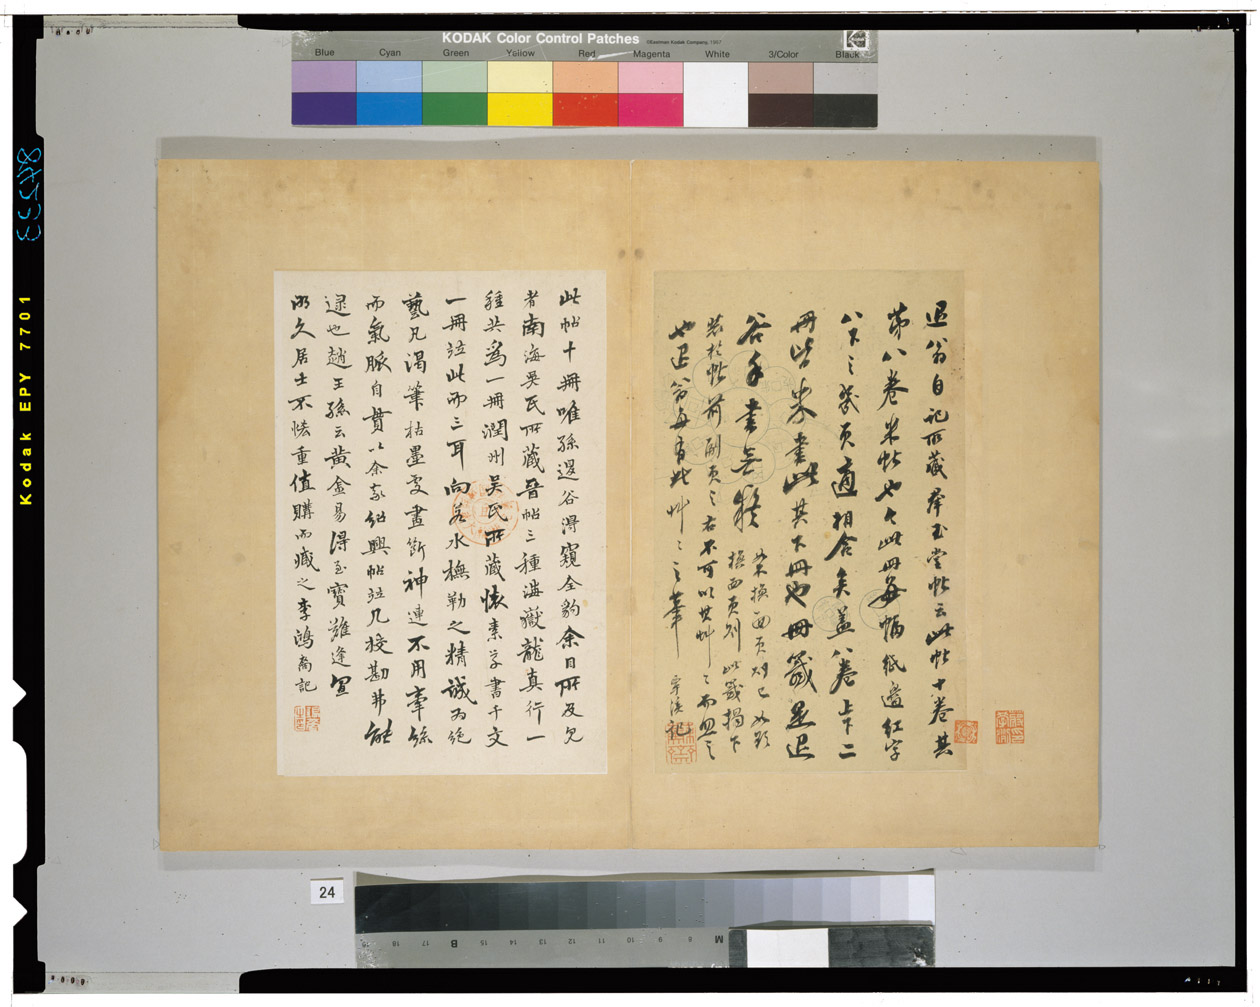 KODAK Color Control Patches
©Eastman Kodak Company, 1997
Kodak
Blue Cyan Green Yellow Red Magenta White 3/Color Black
退翁自記所藏群玉堂帖云此帖十卷其
第八卷米帖也 此冊每幅紙邊紅字
八下之幾頁適相合矣蓋八卷上下二
冊皆米書此其下冊也冊籤是退
谷手書無疑
裝於帖前副頁之右不可以其艸艸而忽之
也退翁每有此艸艸之筆
記
此帖十冊唯孫退谷得窺全豹余日所及見
者南海吳氏所藏晉帖三種海嶽龍真行一
種共為一冊潤州吳氏所藏懷素草書千文
一冊竝此而三耳向若水橅勒之精誠為絕
藝凡渴筆枯墨處畫斷神連不用牽絲
而氣脈自貫以余家紹興帖竝几挍勘弗能
逮也趙王孫云黃金易得至寶難逢宜
溮久居士不惜重值購而藏之李鴻裔記
Kodak EPY 7701
24
19 18 17 B 15 14 13 12 11 10 9 8 M